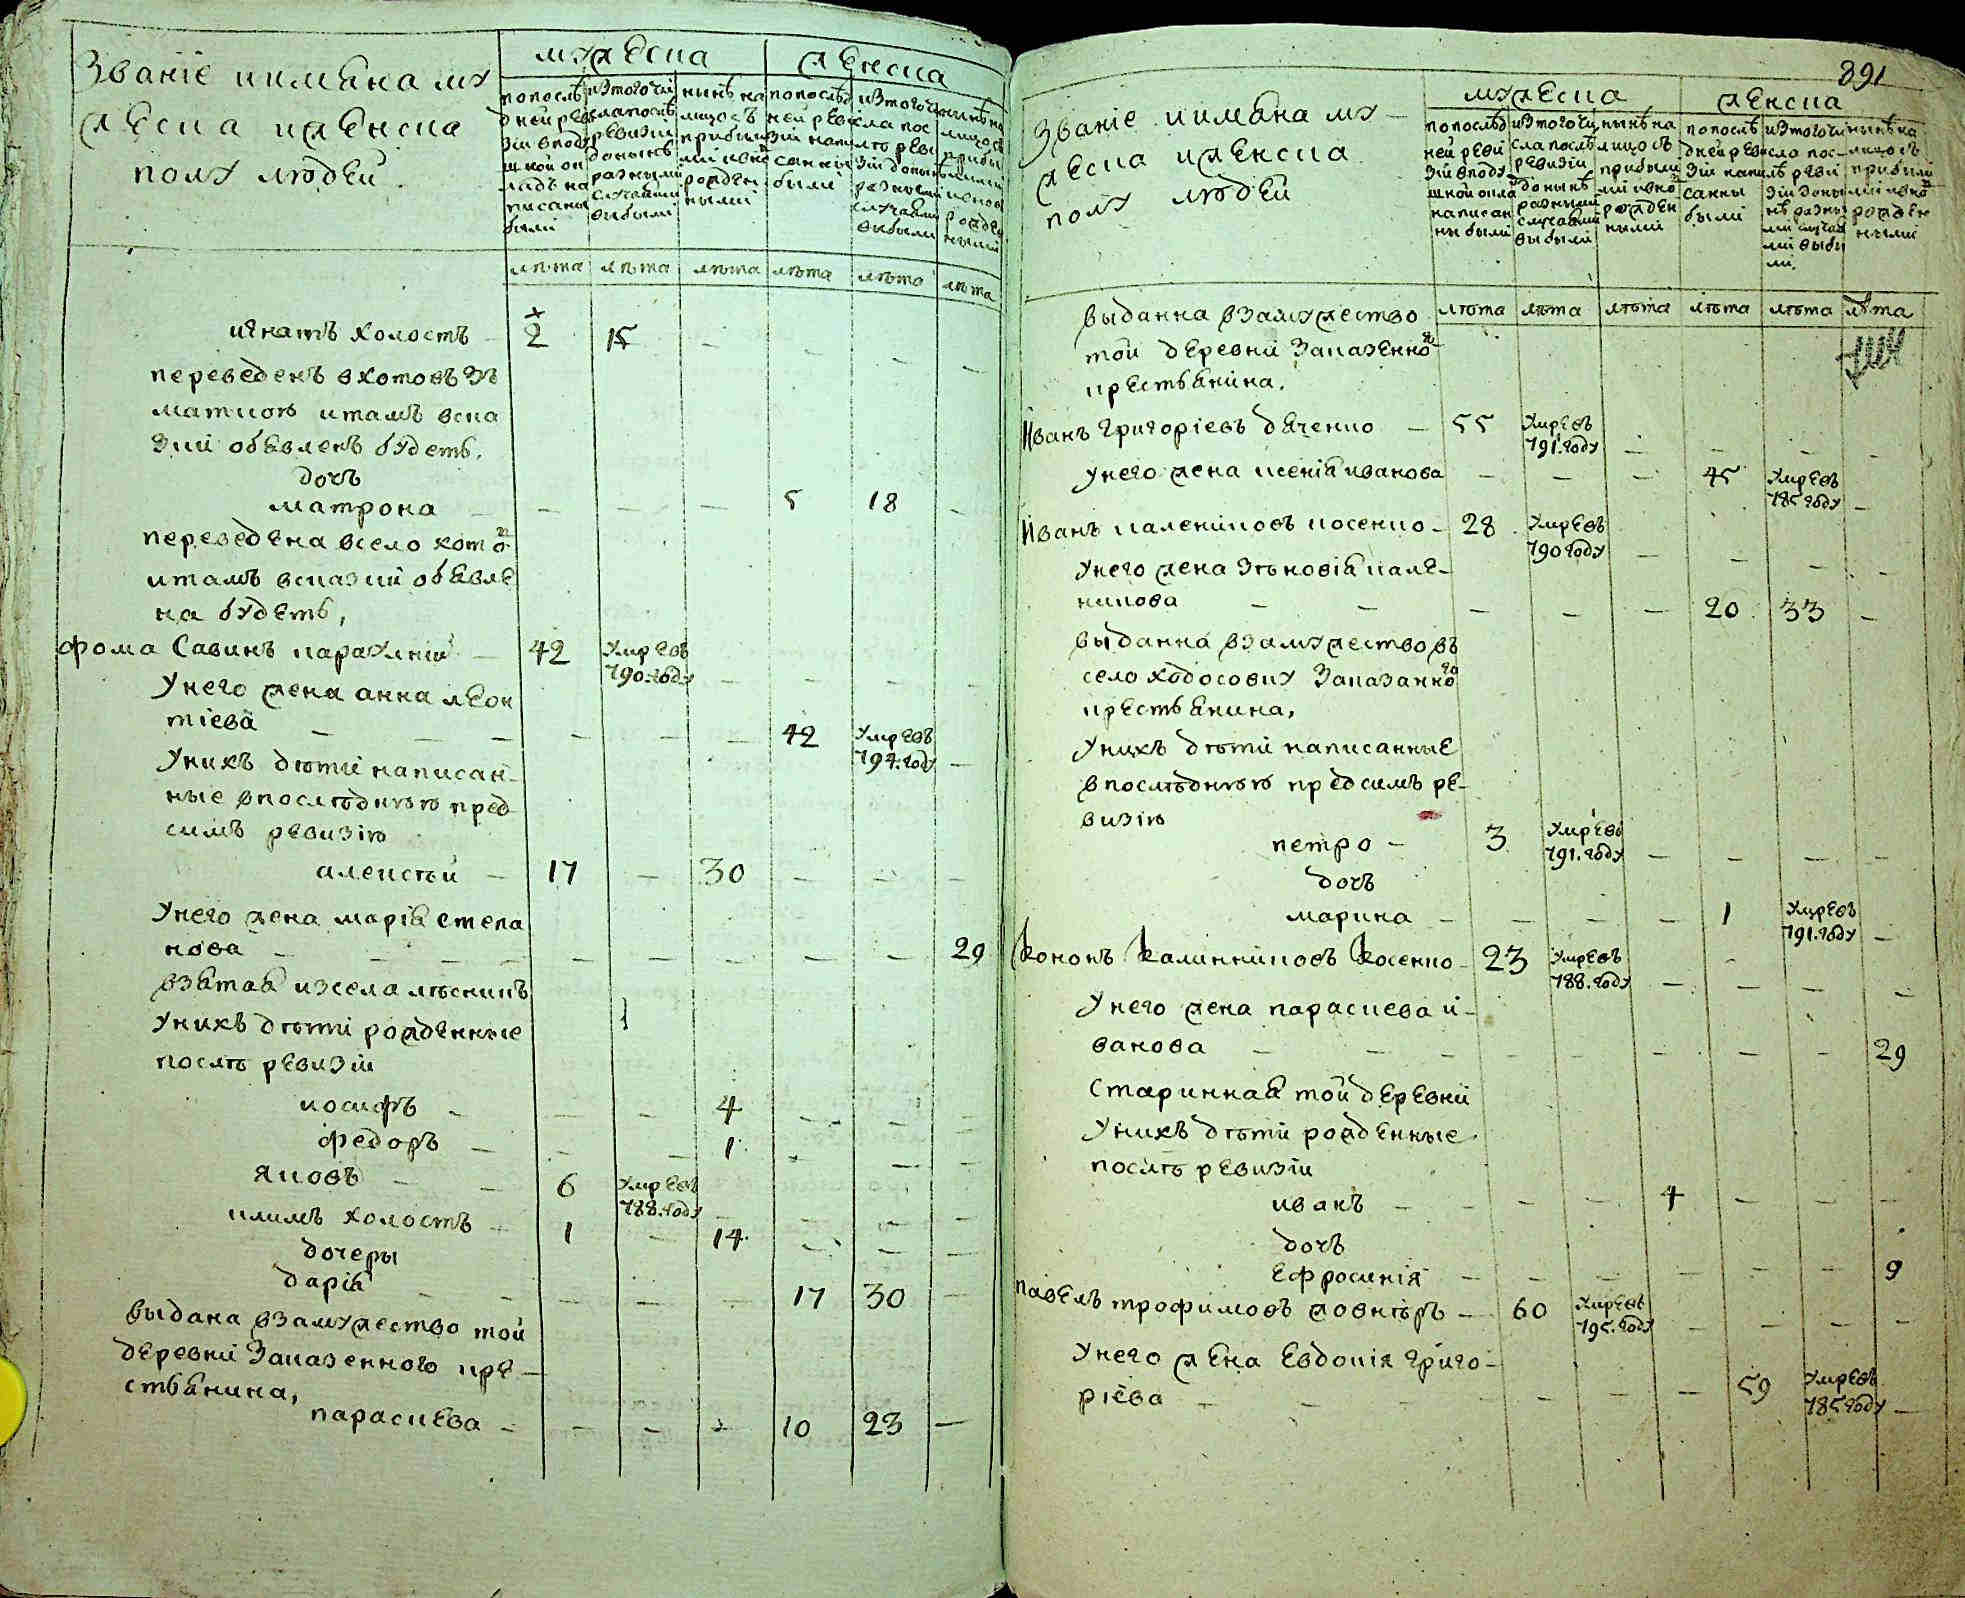 Званіе иимѣна му
жеска иженска
полу людей.
мужеска
женска
попослѣ
дней рев
зіи вподу
шной ок
ладъ на
писаны
были
изтогочи
слапослѣ
ревизіи
донынѣ
разными
случаями
выбыли
нынѣ на
лицо съ
прибыли
ми ивно
рожден
ными
попослѣд
ней реви
зіи напи
саны
были
изтогочи
сла пос
лѣ реви
зіи донынѣ
разными
случаями
выбыли
нынѣ на
лицо съ
прибы
лыми
ивнов
рожден
ными
лѣта лѣта лѣта лѣта лѣта лѣта
игнатъ холостъ 2 15 - - - -
переведенъ вхотовъ зъ
маткою итамъ вска
зки обявленъ будетъ.
дочъ
матрона - - - - 5 18 -
переведена всело хотов
итамъ всказки обявле
на будетъ,
фома Савинъ караулній - 42 умреѣ
790.году - - - -
Унего жена анна леон
тіева - - - - - - 42 умреѣ
794.году -
Унихъ дѣти написан-
ные впослѣднюю пред
симъ ревизію
алексѣй - 17 - 30 - - -
Унего жена марія степа
нова - - - - - - - - 29
взятая изсела лѣсникъ
Унихъ дѣти рожденные
послѣ ревизіи
иосифъ - - - 4 - - -
федоръ - - - 1 - - -
яковъ - - 6 умреѣ
788.году - - - -
климъ холостъ - 1 - 14 - - -
дочеры
дарія - - - - - 17 30 -
выдана взамужество той
деревни Заказенного кре-
стьянина,
параскева - - - - 10 23 -
891
Званіе иимѣна му-
жеска иженска
полу людей
мужеска
женска
попослѣд
ней реви
зіи вподу
шной окла
написан
ны были
изтогочи
сла послѣ
ревизіи
донынѣ
разными
случаями
выбыли
нынѣ на
лицо съ
прибыли
ми ивно
рожден
ными
попослѣ
дней реви
зіи напи
санны
были
изтогочи
сла пос-
лѣ реви
зіи доны
нѣ разны
ми случая
ми выбы
ли.
нынѣ на
лицо съ
прибылы
ми ивно
рожден
ными
лѣта лѣта лѣта лѣта лѣта лѣта
выданна взамужество
той деревни Заказенно
крестьянина.
Иванъ григоріевъ дяченко - 55 умреѣ
791.году - - - -
Унего жена ксенія иванова - - - 45 умреѣ
785 году -
Иванъ каленіковъ косенко - 28 умреѣ
790 году - - - -
Унего жена Зѣновія кале-
никова - - - - - 20 33 -
выданна взамужество въ
село ходосовку Заказанного
крестьянина,
Унихъ дѣти написанные
впослѣднюю предсимъ ре-
визію
петро - 3 умреѣ
791.году - - - -
дочъ
марина - - - - 1 умреѣ
791.году -
Кононъ Калинниковъ Косенко - 23 умреѣ
788.году - - - -
Унего жена параскева и-
ванова - - - - - - - 29
Старинная той деревни
Унихъ дѣти рожденные
послѣ ревизіи
иванъ - - - 4 - - -
дочъ
Ефросинія - - - - - - 9
павелъ трофимовъ жовнѣръ - 60 умреѣ
795.году - - - -
Унего жена Евдокія григо-
ріева - - - - - 59 умреѣ
785 году -